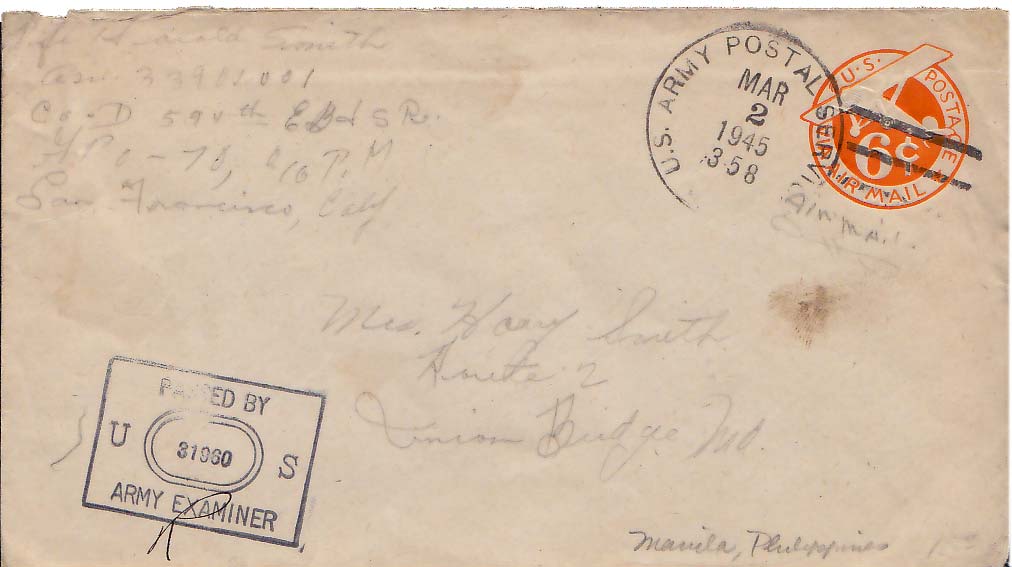 Pfc Harold Smith
ASN. 33901001
Co. D 594th EB & S R.
APO-70, c/o P.M
San Francisco, Calif
U.S. ARMY POSTAL SERVI
MAR
2
1945
358
U.S. POSTAGE
6¢
AIR MAIL
Air Mail.
Mrs. Harry Smith
Route 2
Union Bridge Md.
PASSED BY
U 31960 S
ARMY EXAMINER
Manila, Philippines